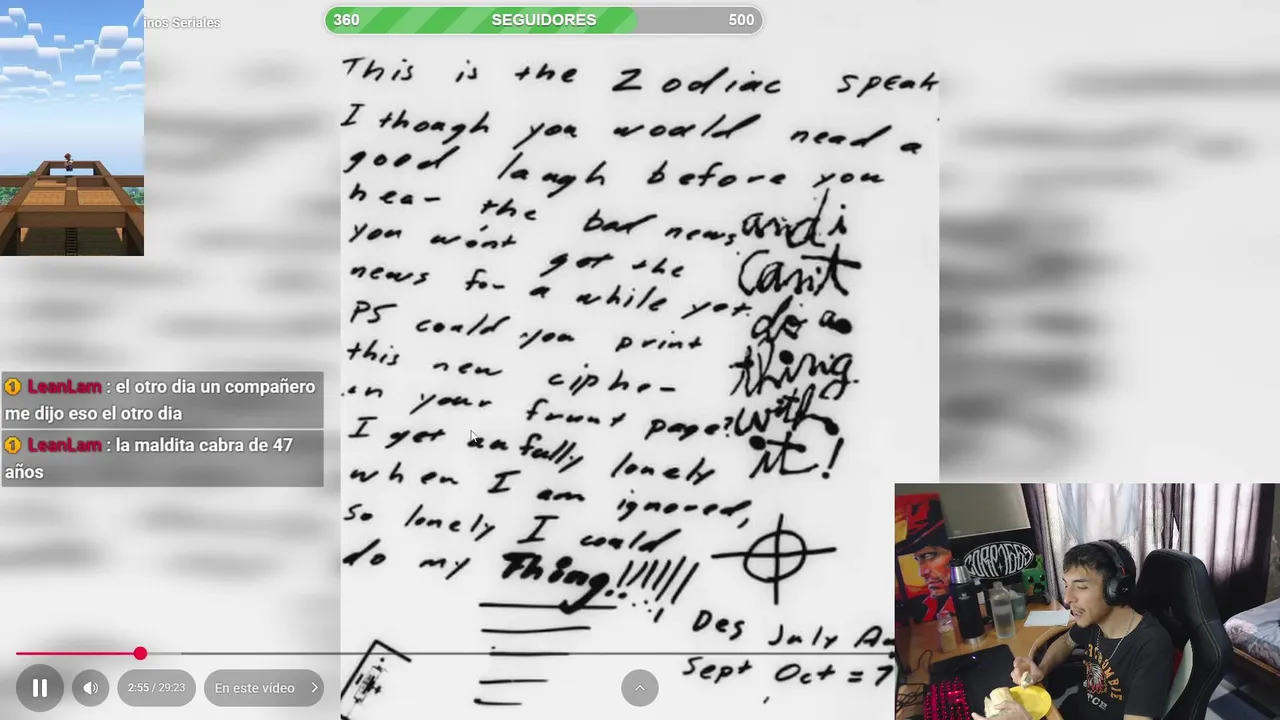 inos Seriales
360 SEGUIDORES 500
This is the Zodiac speak
I though you would need a
good laugh before you
hear the bad news
you won't get the
news for a while yet.
PS could you print
this new cipher
on your frunt page?
I get aufully lonely
when I am ignored,
so lonely I could
do my Thing!!!!!!
and i
can't
do a
thing
with
it!
Des July Au
Sept Oct = 7
LeanLam : el otro dia un compañero
me dijo eso el otro dia
LeanLam : la maldita cabra de 47
años
CORP1669
2:55 / 29:23
En este vídeo